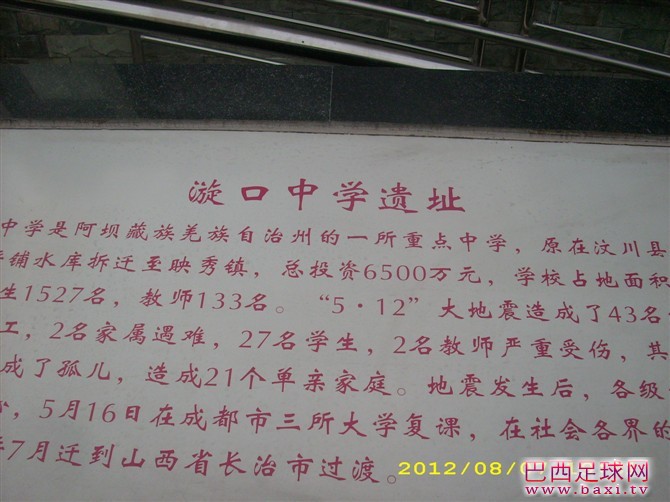 漩口中学遗址
中学是阿坝藏族羌族自治州的一所重点中学，原在汶川县
铺水库拆迁至映秀镇，总投资6500万元，学校占地面积
生1527名，教师133名。“5·12”大地震造成了43名
工，2名家属遇难，27名学生，2名教师严重受伤，其
成了孤儿，造成21个单亲家庭。地震发生后，各级
，5月16日在成都市三所大学复课，在社会各界的
7月迁到山西省长治市过渡。
2012/08/0
巴西足球网
www.baxi.tv